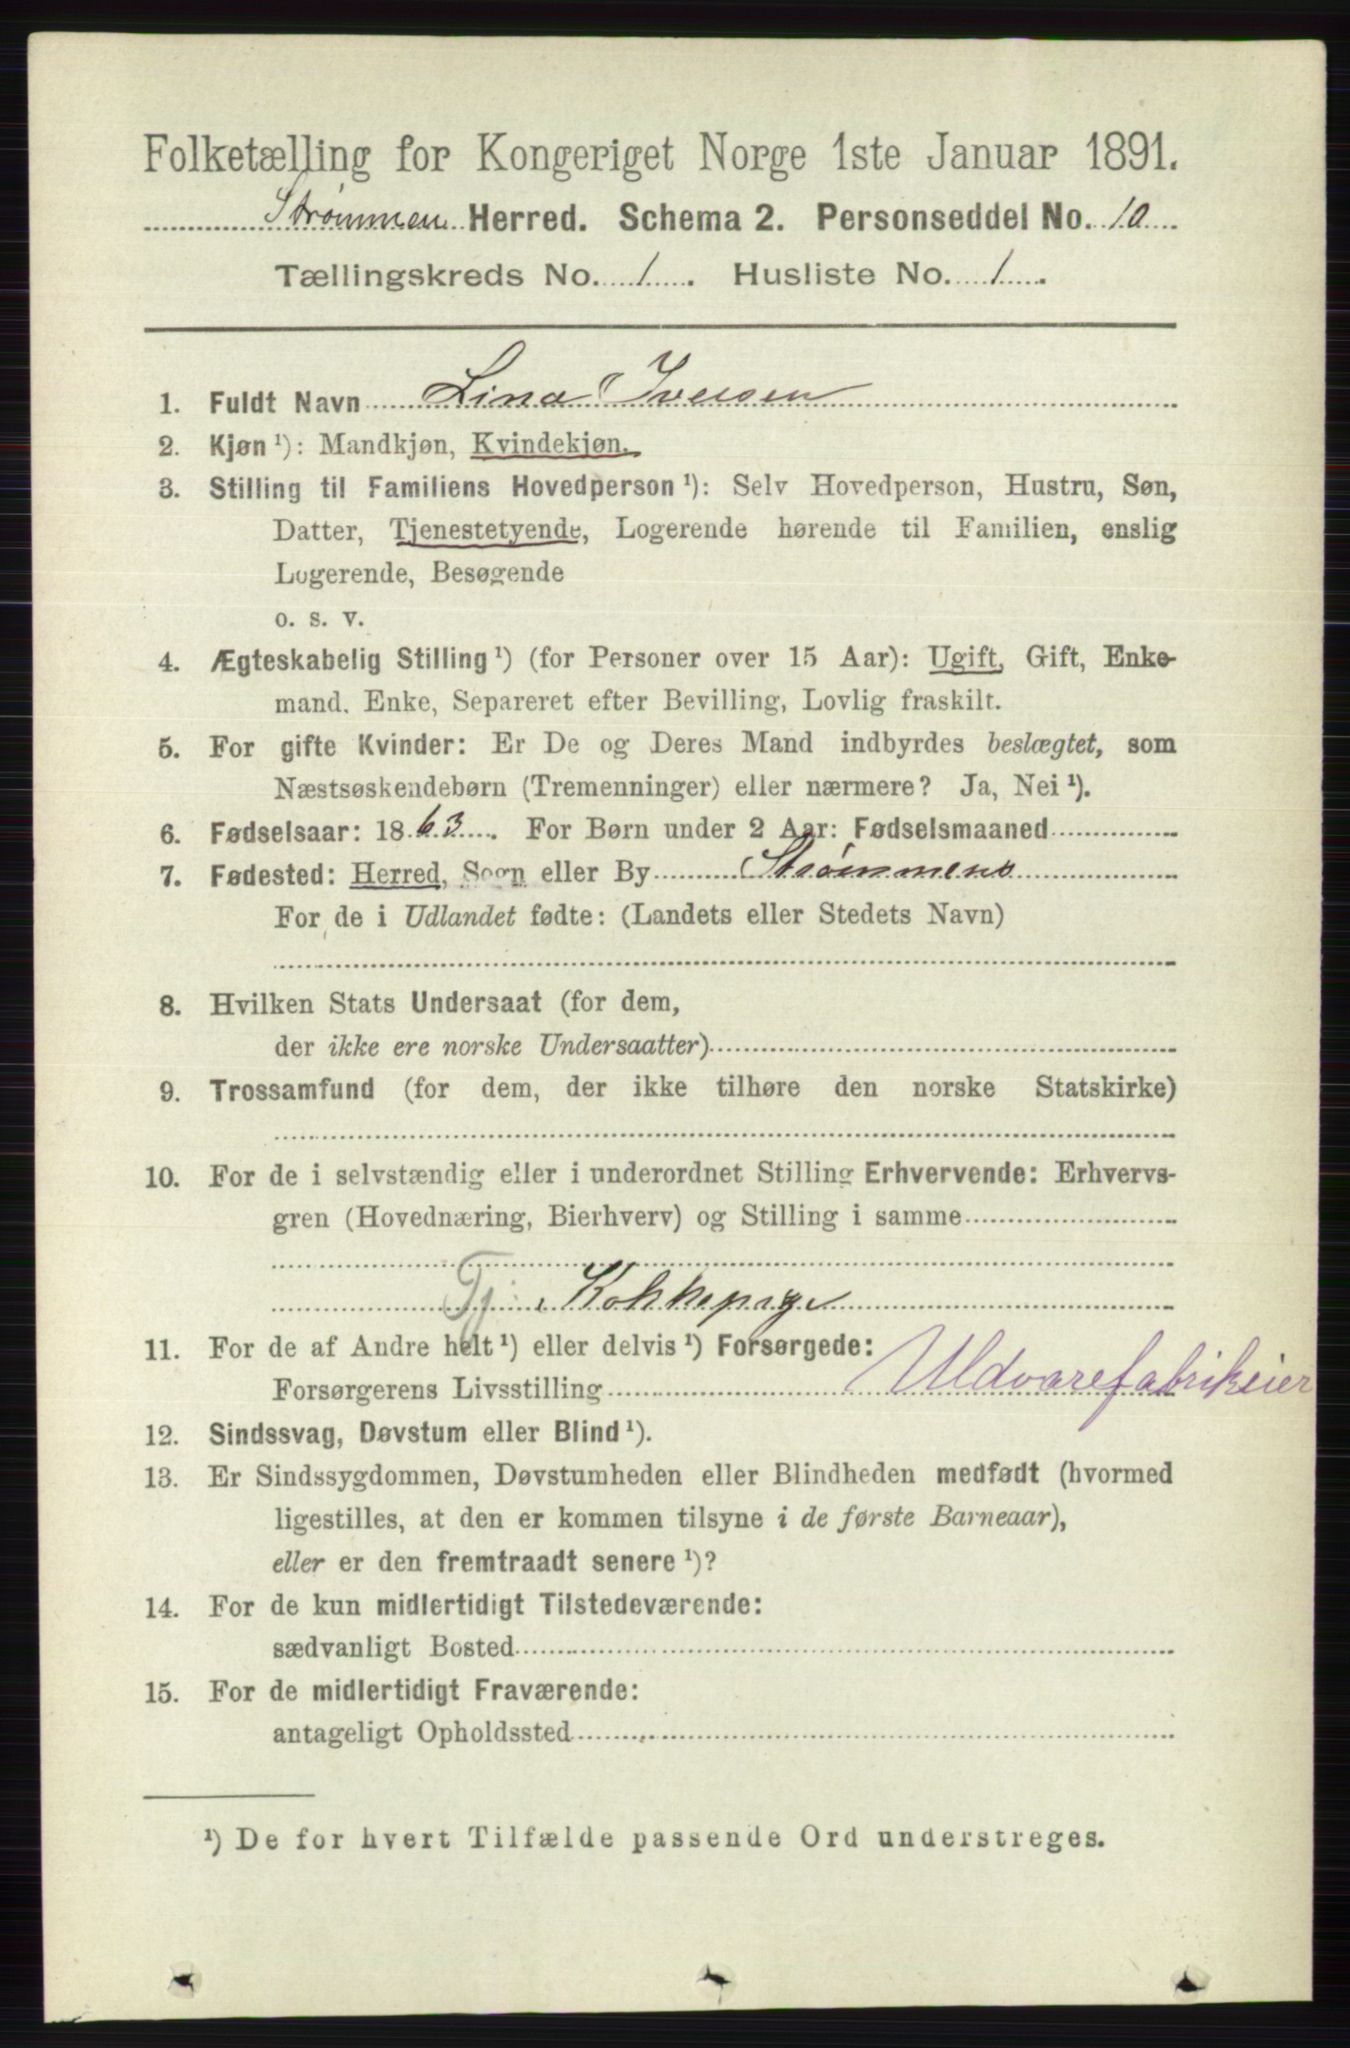 Folketælling for Kongeriget Norge 1ste Januar 1891.
Strømmen Herred. Schema 2. Personseddel No. 10
Tællingskreds No. 1. Husliste No. 1.
1. Fuldt Navn Lina Iversen
2. Kjøn ¹): Mandkjøn, Kvindekjøn.
3. Stilling til Familiens Hovedperson ¹): Selv Hovedperson, Hustru, Søn,
Datter, Tjenestetyende, Logerende hørende til Familien, enslig
Logerende, Besøgende
o. s. v.
4. Ægteskabelig Stilling ¹) (for Personer over 15 Aar): Ugift, Gift, Enke-
mand, Enke, Separeret efter Bevilling, Lovlig fraskilt.
5. For gifte Kvinder: Er De og Deres Mand indbyrdes beslægtet, som
Næstsøskendebørn (Tremenninger) eller nærmere? Ja, Nei ¹).
6. Fødselsaar: 1863. For Børn under 2 Aar: Fødselsmaaned
7. Fødested: Herred, Sogn eller By Strømmens
For de i Udlandet fødte: (Landets eller Stedets Navn)
8. Hvilken Stats Undersaat (for dem,
der ikke ere norske Undersaatter)
9. Trossamfund (for dem, der ikke tilhøre den norske Statskirke)
10. For de i selvstændig eller i underordnet Stilling Erhvervende: Erhvervs-
gren (Hovednæring, Bierhverv) og Stilling i samme
Tj. Kokkepige
11. For de af Andre helt ¹) eller delvis ¹) Forsørgede:
Forsørgerens Livsstilling Uldvarefabrikeier
12. Sindssvag, Døvstum eller Blind ¹).
13. Er Sindssygdommen, Døvstumheden eller Blindheden medfødt (hvormed
ligestilles, at den er kommen tilsyne i de første Barneaar),
eller er den fremtraadt senere ¹)?
14. For de kun midlertidigt Tilstedeværende:
sædvanligt Bosted
15. For de midlertidigt Fraværende:
antageligt Opholdssted
¹) De for hvert Tilfælde passende Ord understreges.